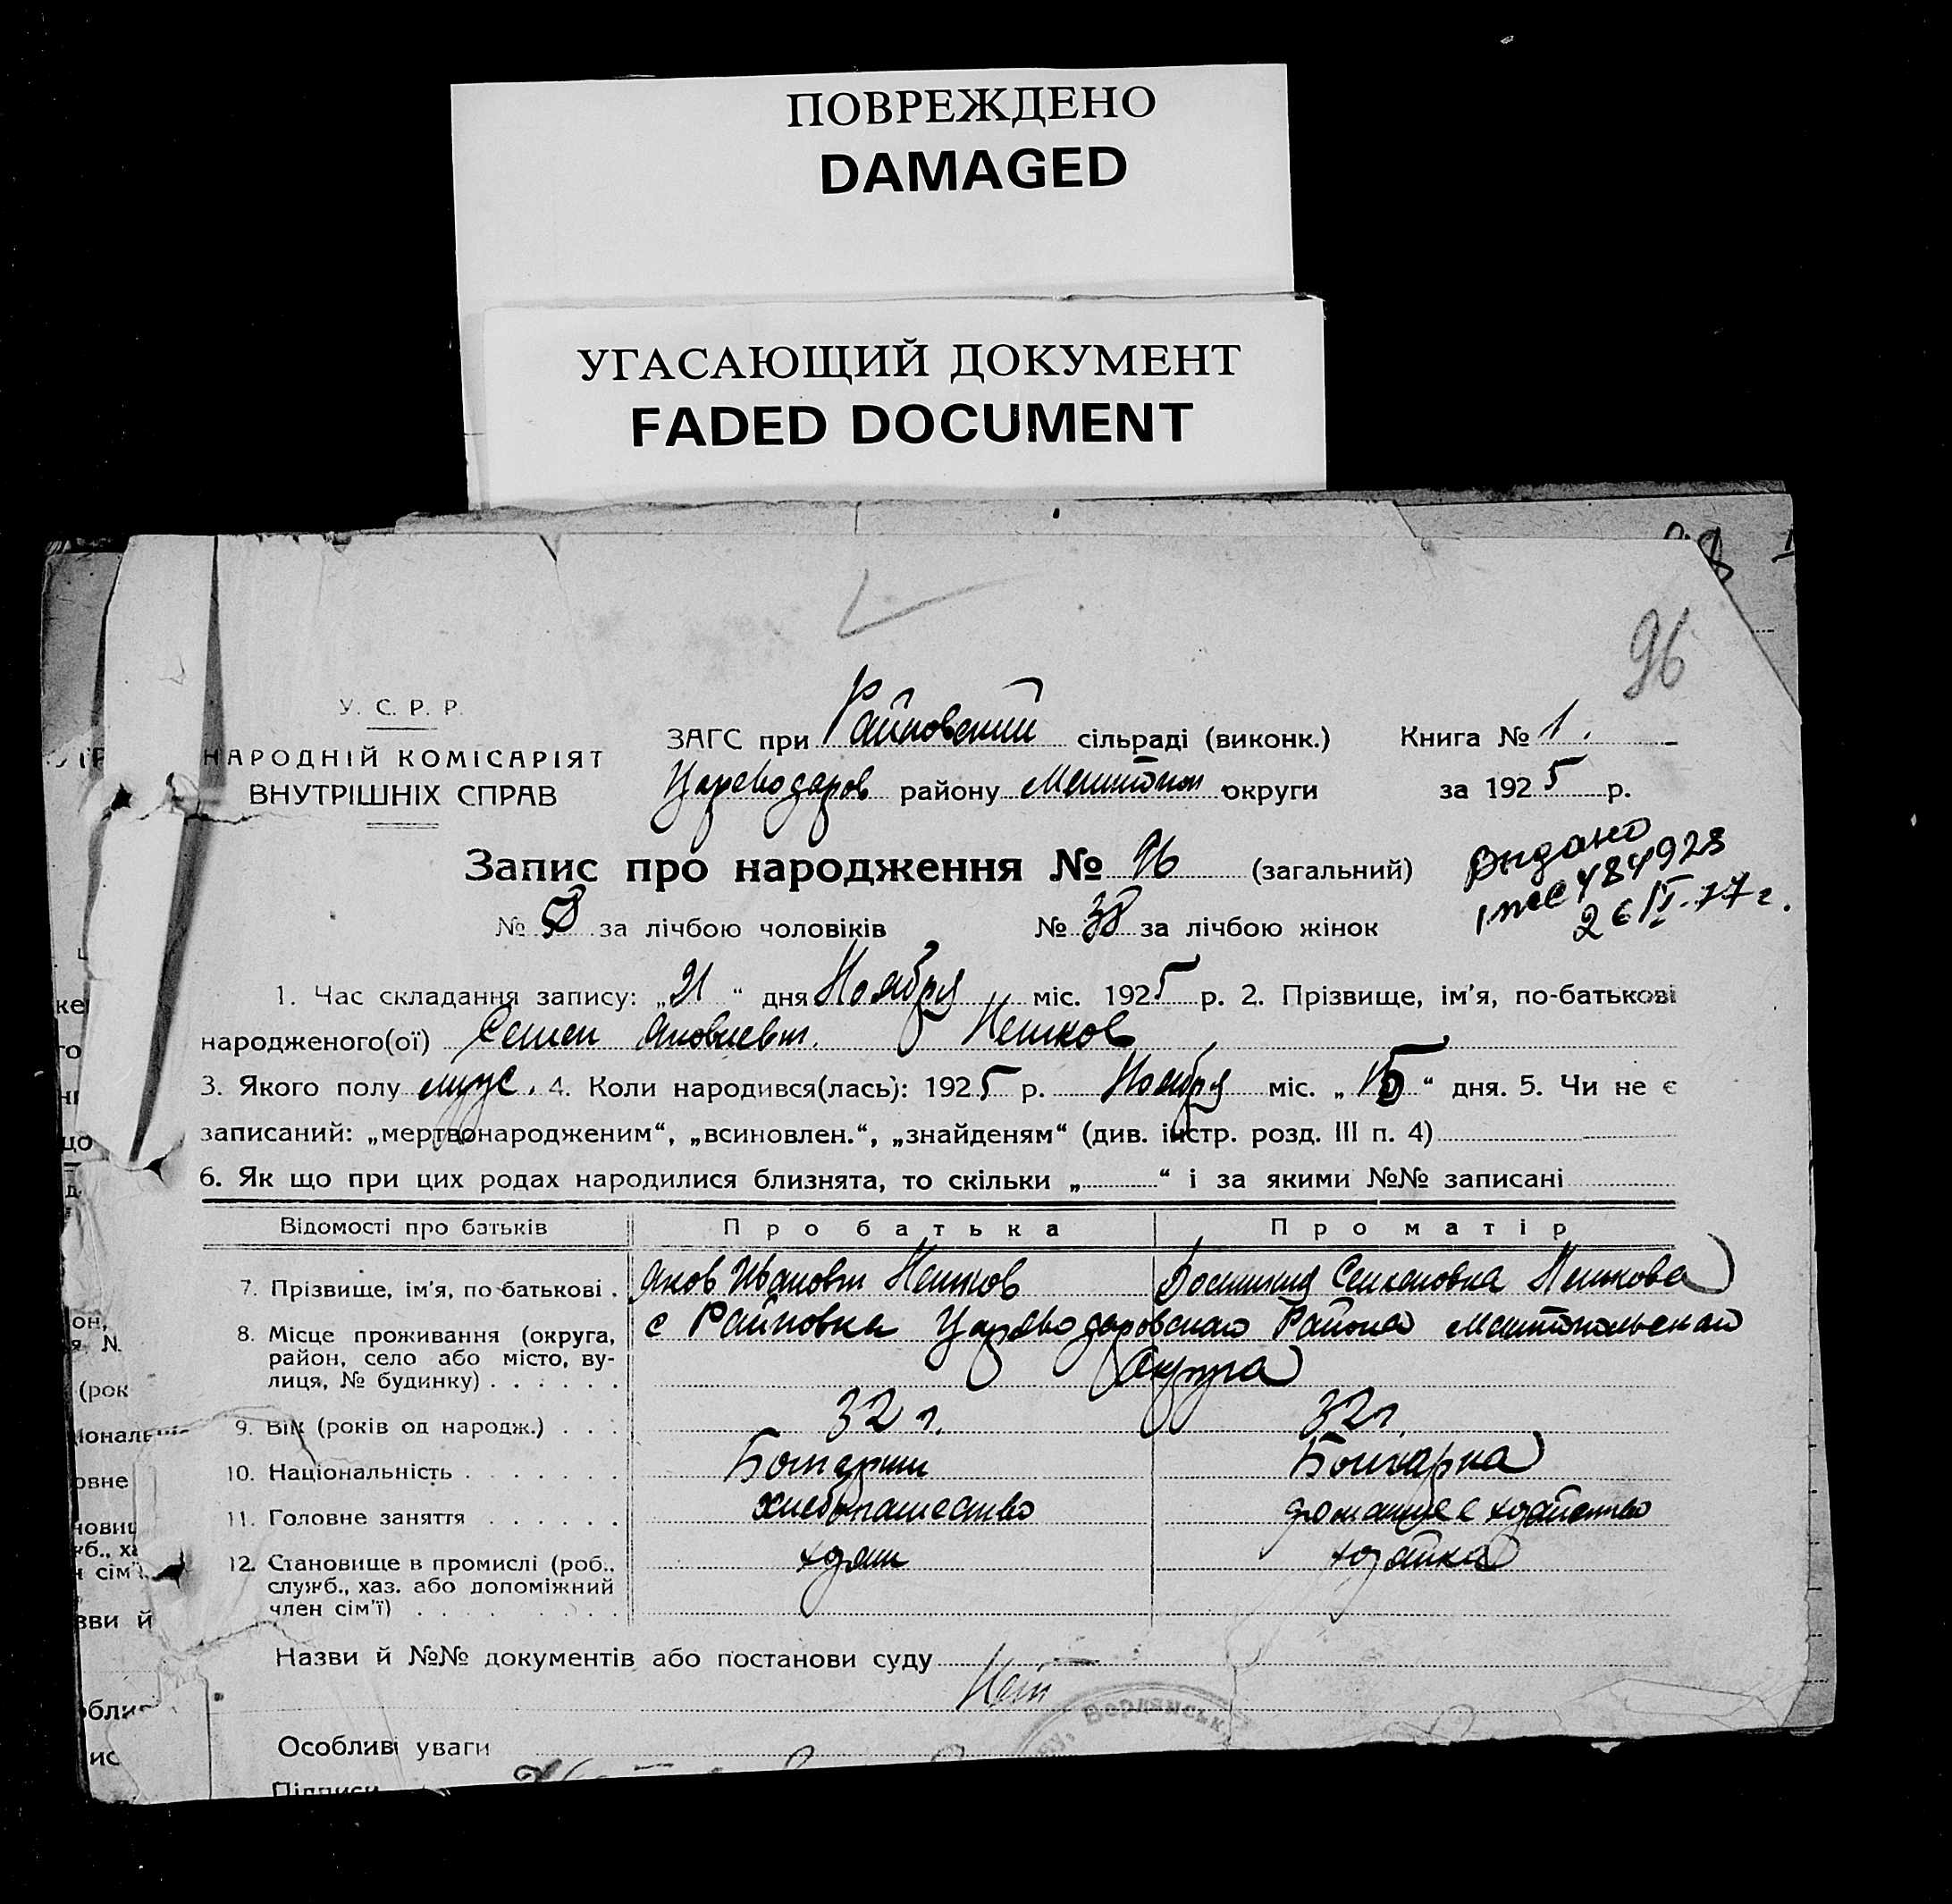 ПОВРЕЖДЕНО
DAMAGED
УГАСАЮЩИЙ ДОКУМЕНТ
FADED DOCUMENT
96
У. С. Р. Р.
НАРОДНІЙ КОМІСАРІЯТ
ВНУТРІШНІХ СПРАВ
ЗАГС при Райновский сільраді (виконк.) Книга № 1.
Цареводаров району Мелитопол округи за 1925 р.
Запис про народження № 96 (загальний)
Выдано
484928
26 II-77 г.
№ 58 за лічбою чоловіків № 38 за лічбою жінок
1. Час складання запису: „21“ дня Ноября міс. 1925 р. 2. Прізвище, ім'я, по-батькові
народженого(ої) Семен Яковлевич Пешков
3. Якого полу муж. 4. Коли народився(лась): 1925 р. Ноября міс. „15“ дня. 5. Чи не є
записаний: „мертвонародженим“, „всиновлен.“, „знайденям“ (див. інстр. розд. III п. 4)
6. Як що при цих родах народилися близнята, то скільки „ “ і за якими №№ записані
Відомості про батьків Про батька Про матір
7. Прізвище, ім'я, по-батькові . Яков Иванович Пешков Семеновна Пешкова
8. Місце проживання (округа, район, село або місто, вулиця, № будинку) . . . . . . с Райновка Цареводаровского Района Мелитопольского
Округа
9. Вік (років од народж.) . . . 32 г. 32 г.
10. Національність . . . . . . . Болгарин Болгарка
11. Головне заняття . . . . . . хлебопашество домашнее хозяйство
12. Становище в промислі (роб., служб., хаз. або допоміжний член сім'ї) . . . . . . . хозяин хозяйка
Назви й №№ документів або постанови суду
Нет
Особливі уваги
Підписи